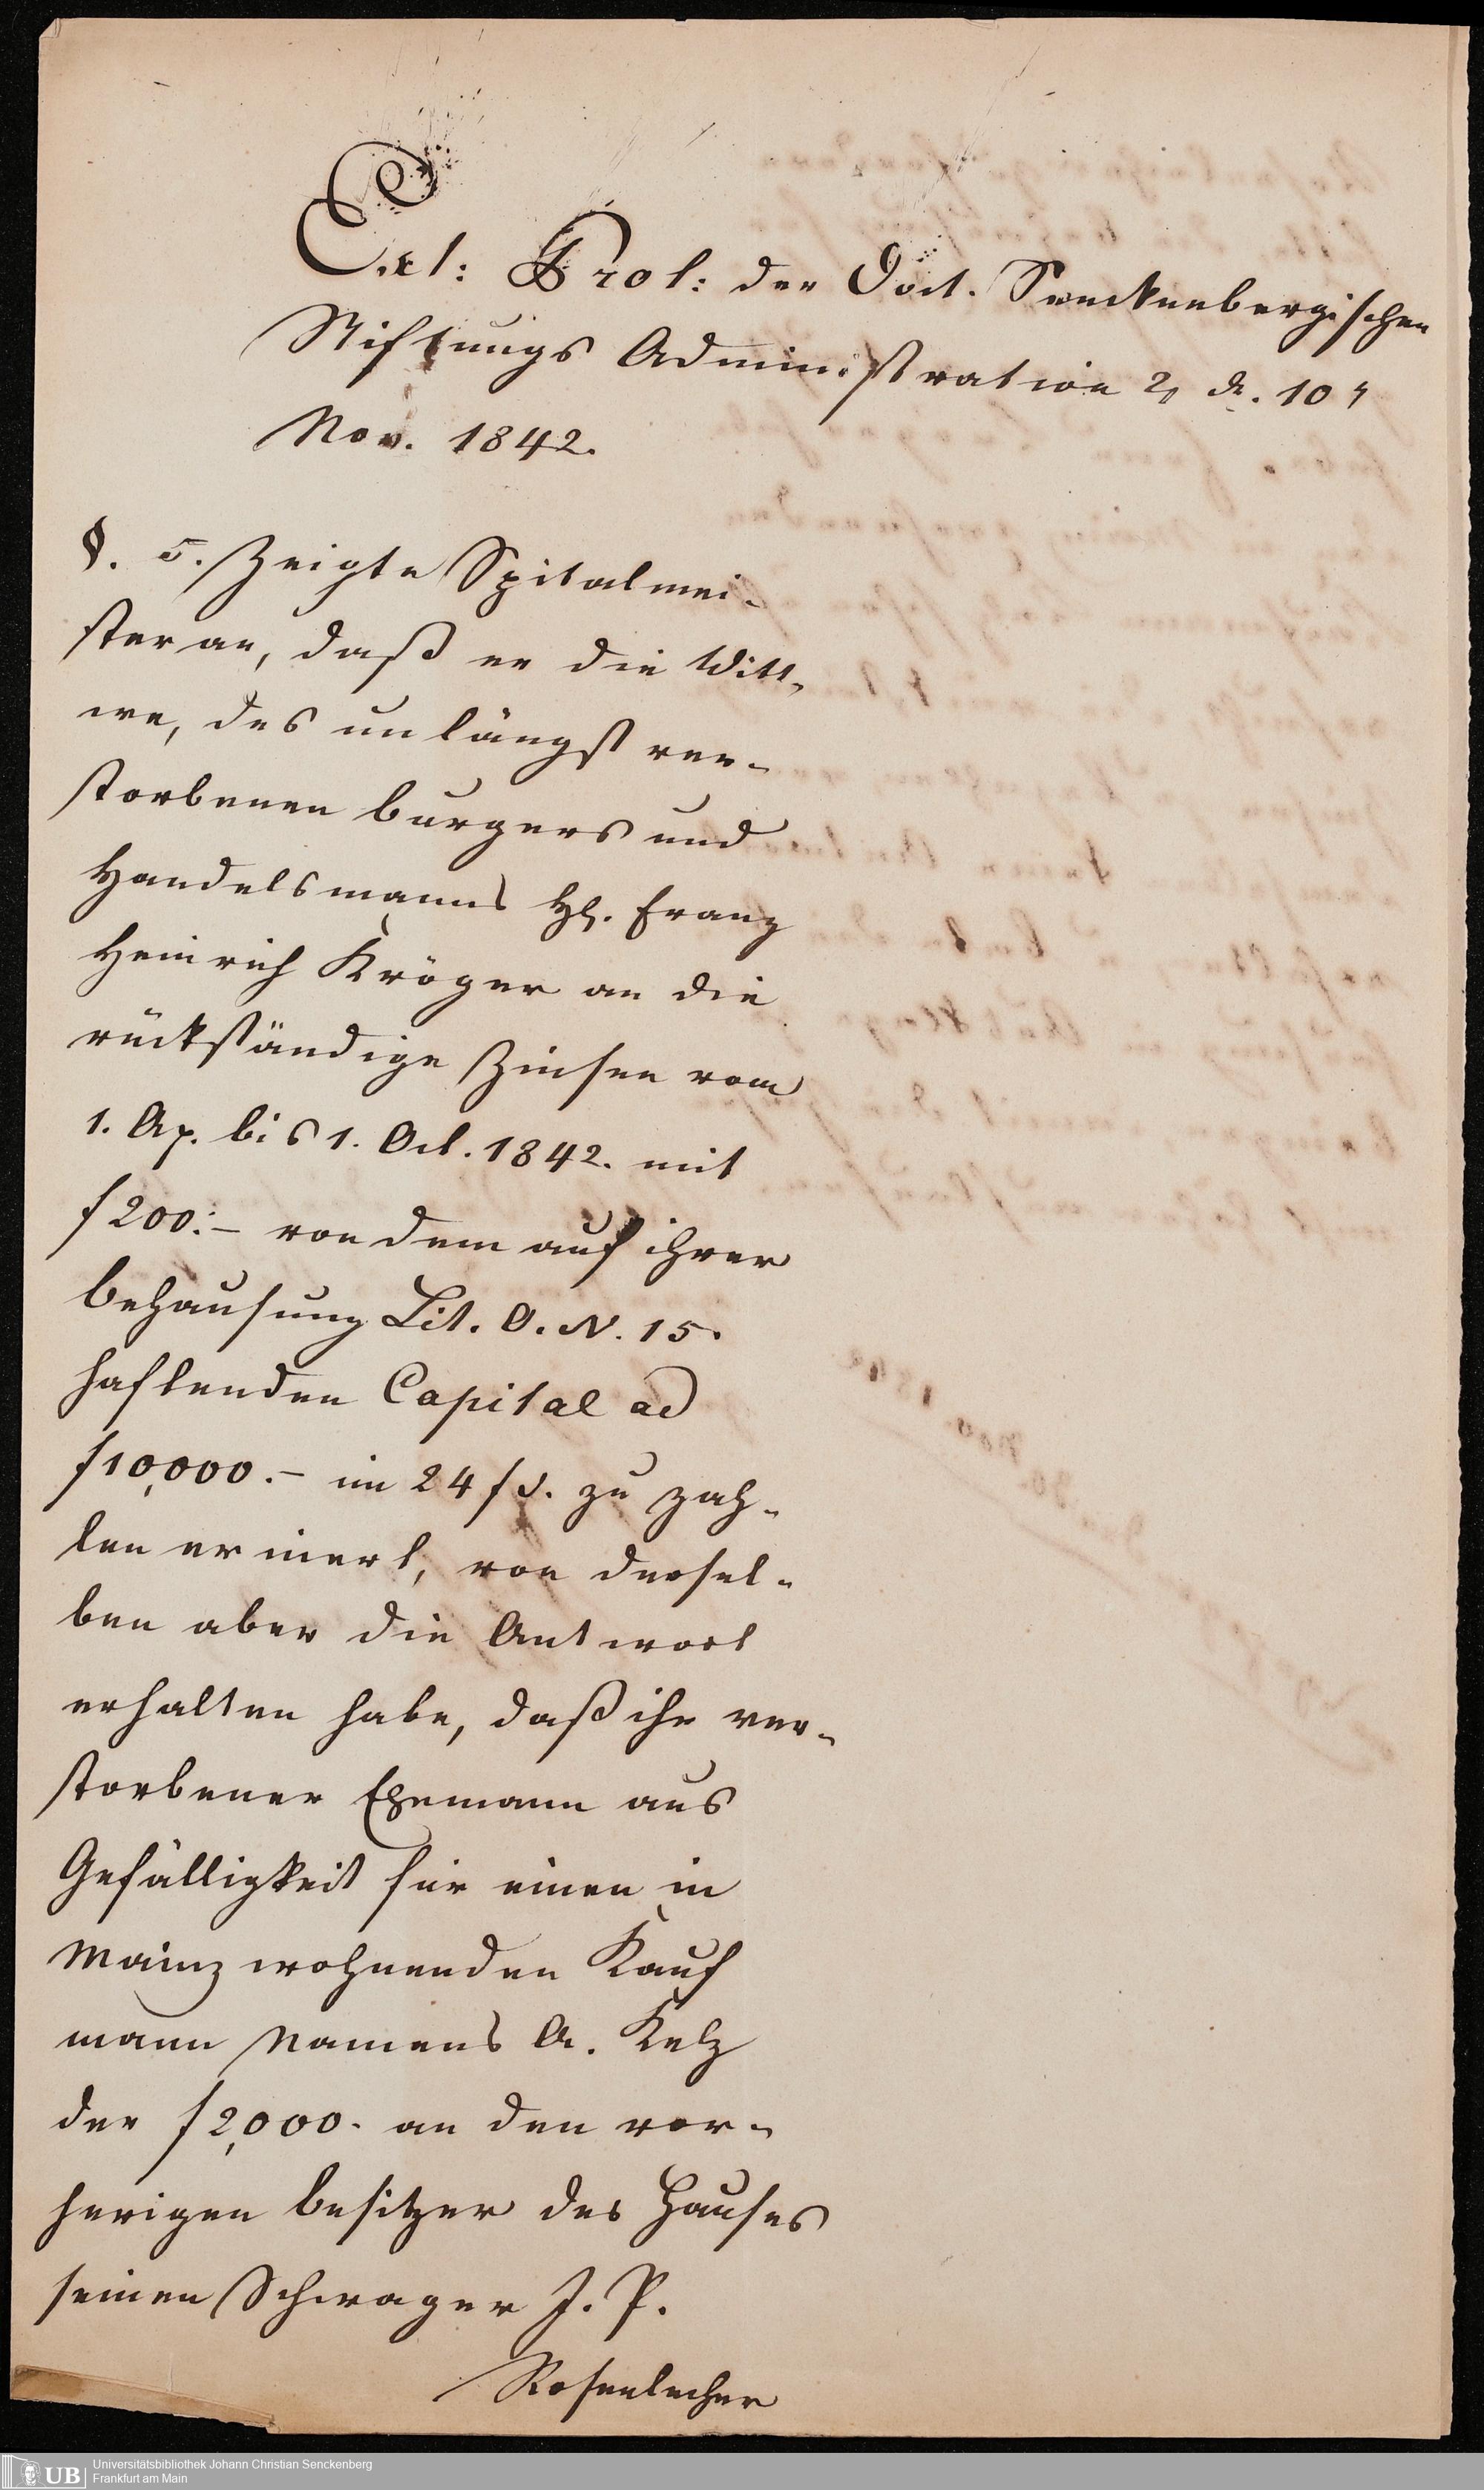 Ext: Prot: der Doct. Senckenbergischen
Stiftungs Administration 4 d. 10t
Nov. 1842.
§. 5. Zeigte Spitalmei-
ster an, daß er die Witt-
we, des unlängst ver-
storbenen burgers und
Handelsmanns H. Franz
Heinrich Kröger an die
rückständige Zinsen vom
1. Ap. bis 1. Oct. 1842. mit
f 200:- von dem auf ihrer
behausung Lit. O. N. 15.
haftenden Capital ad
f 10,000.- im 24 fs. zu zah-
len erinert, von dersel-
ben aber die Antwort
erhalten habe, daß ihr ver-
storbener Ehemann aus
Gefälligkeit für einen in
Mainz wohnenden Kauf
mann Namens A. Kelz
der f 2,000. an den vor-
herigen besitzer des Hauses
seinen Schwager J. P.
Rosenlecher
UB Universitätsbibliothek Johann Christian Senckenberg
Frankfurt am Main